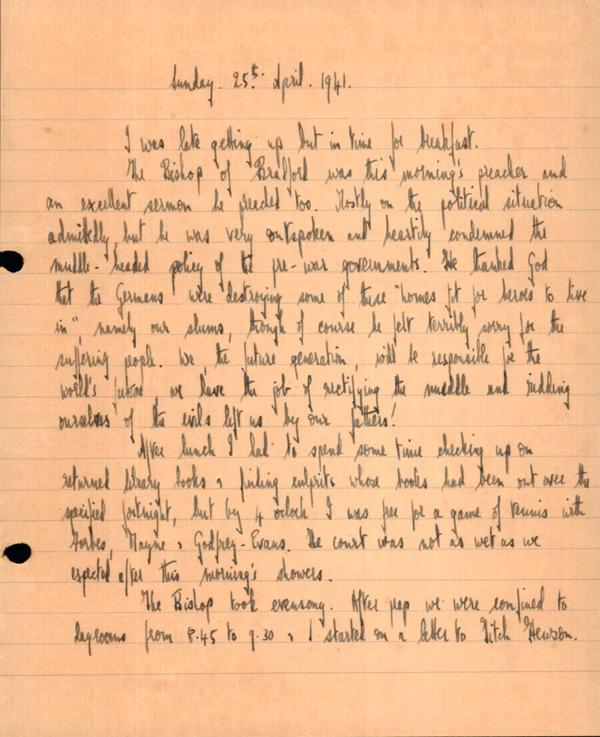 Sunday. 25th. April. 1941.
I was late getting up but in time for breakfast.
The Bishop of Bradford was this morning's preacher and
an excellent sermon he preached too. Mostly on the political situation
admittedly, but he was very outspoken and heartily condemned the
muddle-headed policy of the pre-war governments. He thanked God
that the Germans were destroying some of these "homes fit for heroes to live
in", namely our slums, though of course he felt terribly sorry for the
suffering people. We, the future generation, will be responsible for the
world's future, we have the job of rectifying the muddle and ridding
ourselves of the evils left us by our fathers!
After lunch I had to spend some time checking up on
returned library books & finding culprits whose books had been out over the
specified fortnight, but by 4 o'clock I was free for a game of tennis with
Forbes, Mayne & Godfrey-Evans. The court was not as wet as we
expected after this morning's showers.
The Bishop took evensong. After prep we were confined to
dayrooms from 8.45 to 9.30 & I started on a letter to Titch Hewson.